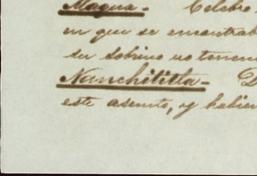 Magua.- Celebro
en que se encontrab
su sobrino no tenem
Nanchititla- D
este asunto, y habien